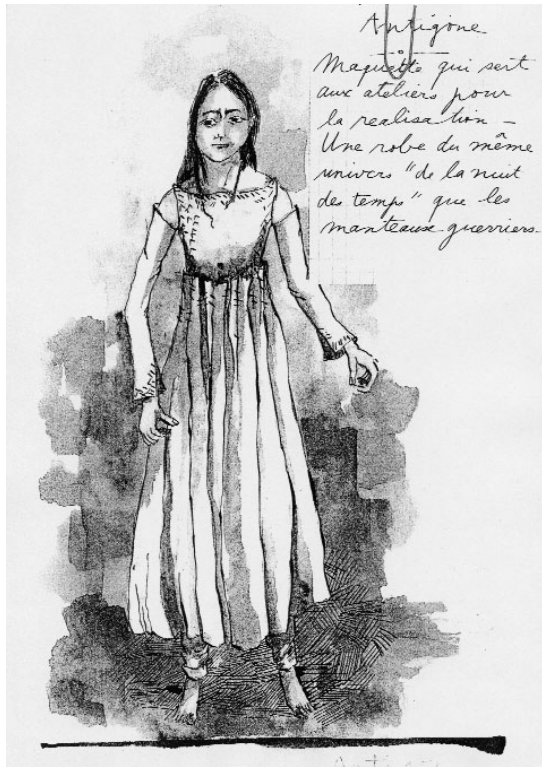 Antigone
Maquette qui sert
aux ateliers pour
la realisation –
Une robe du même
univers "de la nuit
des temps" que les
manteaux guerriers.